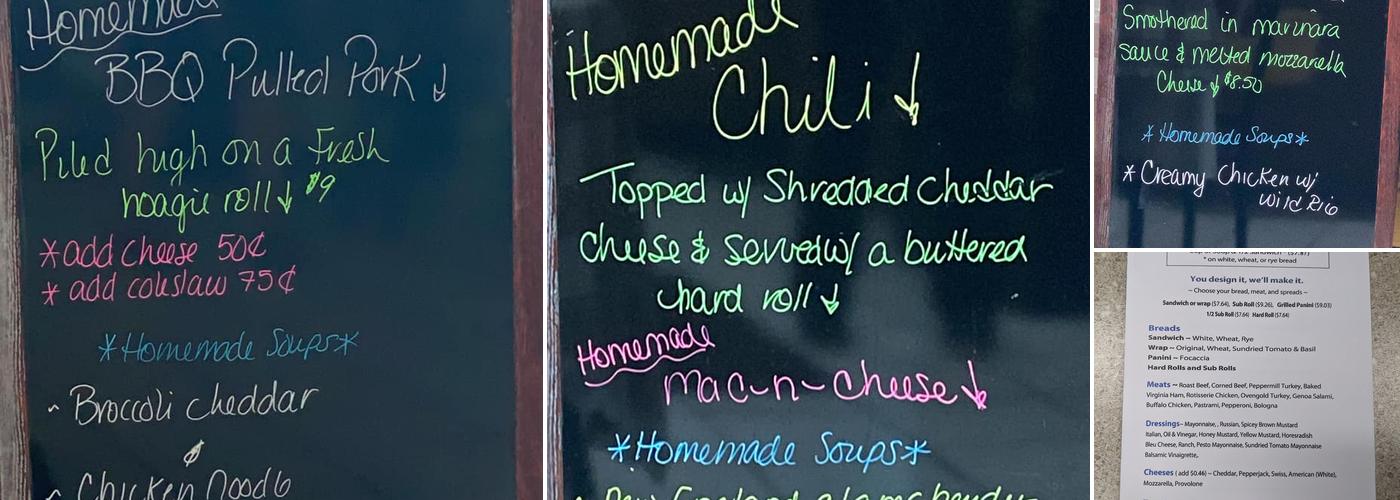 Homemade
BBQ Pulled Pork
Piled high on a Fresh
hoagie roll $9
*add cheese 50¢
* add coleslaw 75¢
*Homemade Soups*
~ Broccoli cheddar
&
~ Chicken Noodle
Homemade
Chili
Topped w/ Shredded Cheddar
Cheese & served w/ a buttered
hard roll
Homemade
Mac-n-Cheese
*Homemade Soups*
~ New England clam chowder
Smothered in marinara
sauce & melted mozzarella
Cheese $8.50
*Homemade Soups*
* Creamy Chicken w/
wild Rice
* on white, wheat, or rye bread
You design it, we'll make it.
~ Choose your bread, meat, and spreads ~
Sandwich or wrap ($7.64), Sub Roll ($9.26), Grilled Panini ($9.03)
1/2 Sub Roll ($7.64) Hard Roll ($7.64)
Breads
Sandwich ~ White, Wheat, Rye
Wrap ~ Original, Wheat, Sundried Tomato & Basil
Panini ~ Focaccia
Hard Rolls and Sub Rolls
Meats ~ Roast Beef, Corned Beef, Peppermill Turkey, Baked
Virginia Ham, Rotisserie Chicken, Ovengold Turkey, Genoa Salami,
Buffalo Chicken, Pastrami, Pepperoni, Bologna
Dressings~ Mayonnaise, , Russian, Spicy Brown Mustard
Italian, Oil & Vinegar, Honey Mustard, Yellow Mustard, Horesradish
Bleu Cheese, Ranch, Pesto Mayonnaise, Sundried Tomato Mayonnaise
Balsamic Vinaigrette,
Cheeses ( add $0.46) ~ Cheddar, Pepperjack, Swiss, American (White),
Mozzarella, Provolone